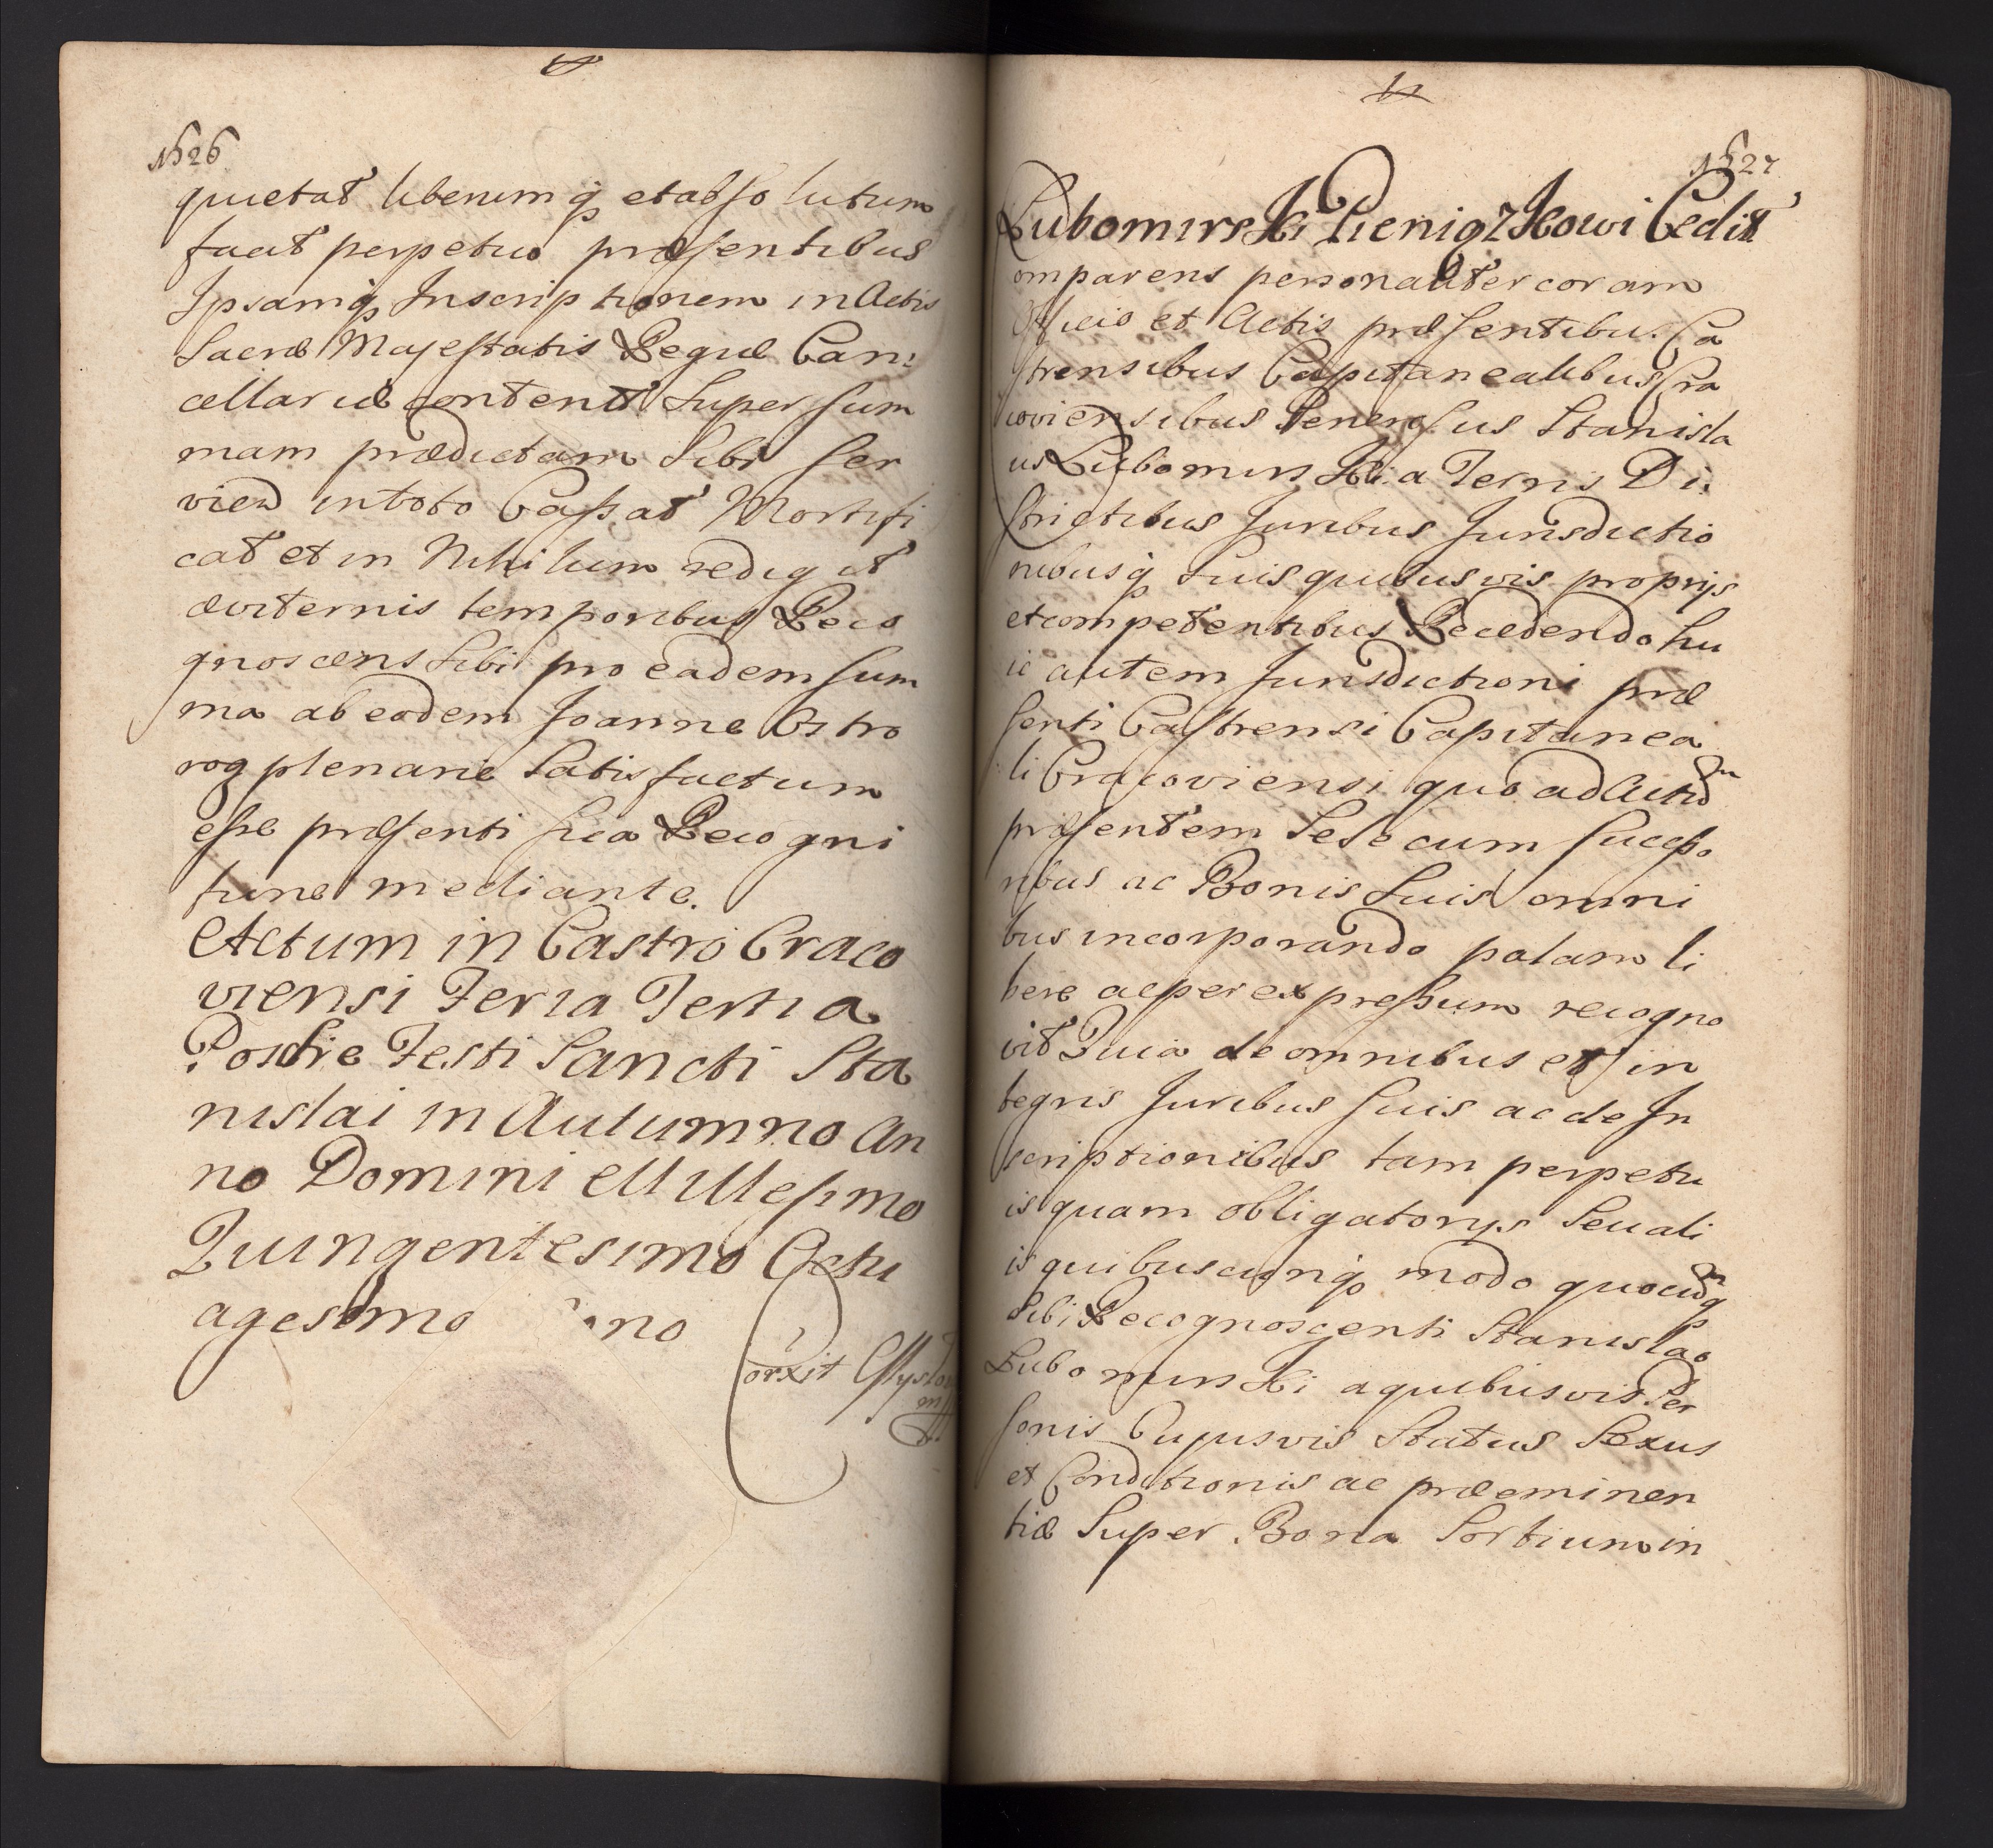 1526
quietat liberumq; et absolutum
facit perpetuo præsentibus
Ipsamq; Inscriptionem in Actis
Sacræ Majestatis Regiæ Can:
cellariæ content Super Sum
mam prædictam Sibi Ser
vien in toto Cassat Mortifi
cat et in Nihilum redigit
æviternis temporibus Reco
gnoscens Sibi pro eadem Sum
ma ab eodem Joanne Ostro
rog plenarie Satisfactum
esse præsenti sua Recogni
tione mediante.
Actum in Castro Craco
viensi Feria Tertia
Postdie Festi Sancti Sta
nislai in Autumno An
no Domini Millesimo
Quingentesimo Octu
agesimo no
orxit
1527
Lubomirski Pieniązkowi Cedit
omparens personaliter coram
Officio et Actis præsentibus Ca
strensibus Capitanealibus Cra
coviensibus Generosus Stanisla
us Lubomirski a Terris Di:
strictibus Juribus Jurisdictio
nibusq; Suis quibusvis proprijs
et competentibus Recedendo hu
ic autem Jurisdictioni præ
senti Castrensi Capitanea
li Cracoviensi quo ad Actum
præsentem Sese cum Successo
ribus ac Bonis Suis omni
bus incorporando palam li
bere ac per expressum recogno
vit Quia de omnibus et in
tegris Juribus Suis ac de In
scriptionibus tam perpetu
is quam obligatorijs Seu ali
is quibuscunq; modo quocunq;
Sibi Recognoscenti Stanislao
Lubomirski a quibusvis Per
sonis Cujusvis Status Sexus
et Conditionis ac præeminen
tiæ Super Bona Sortium in